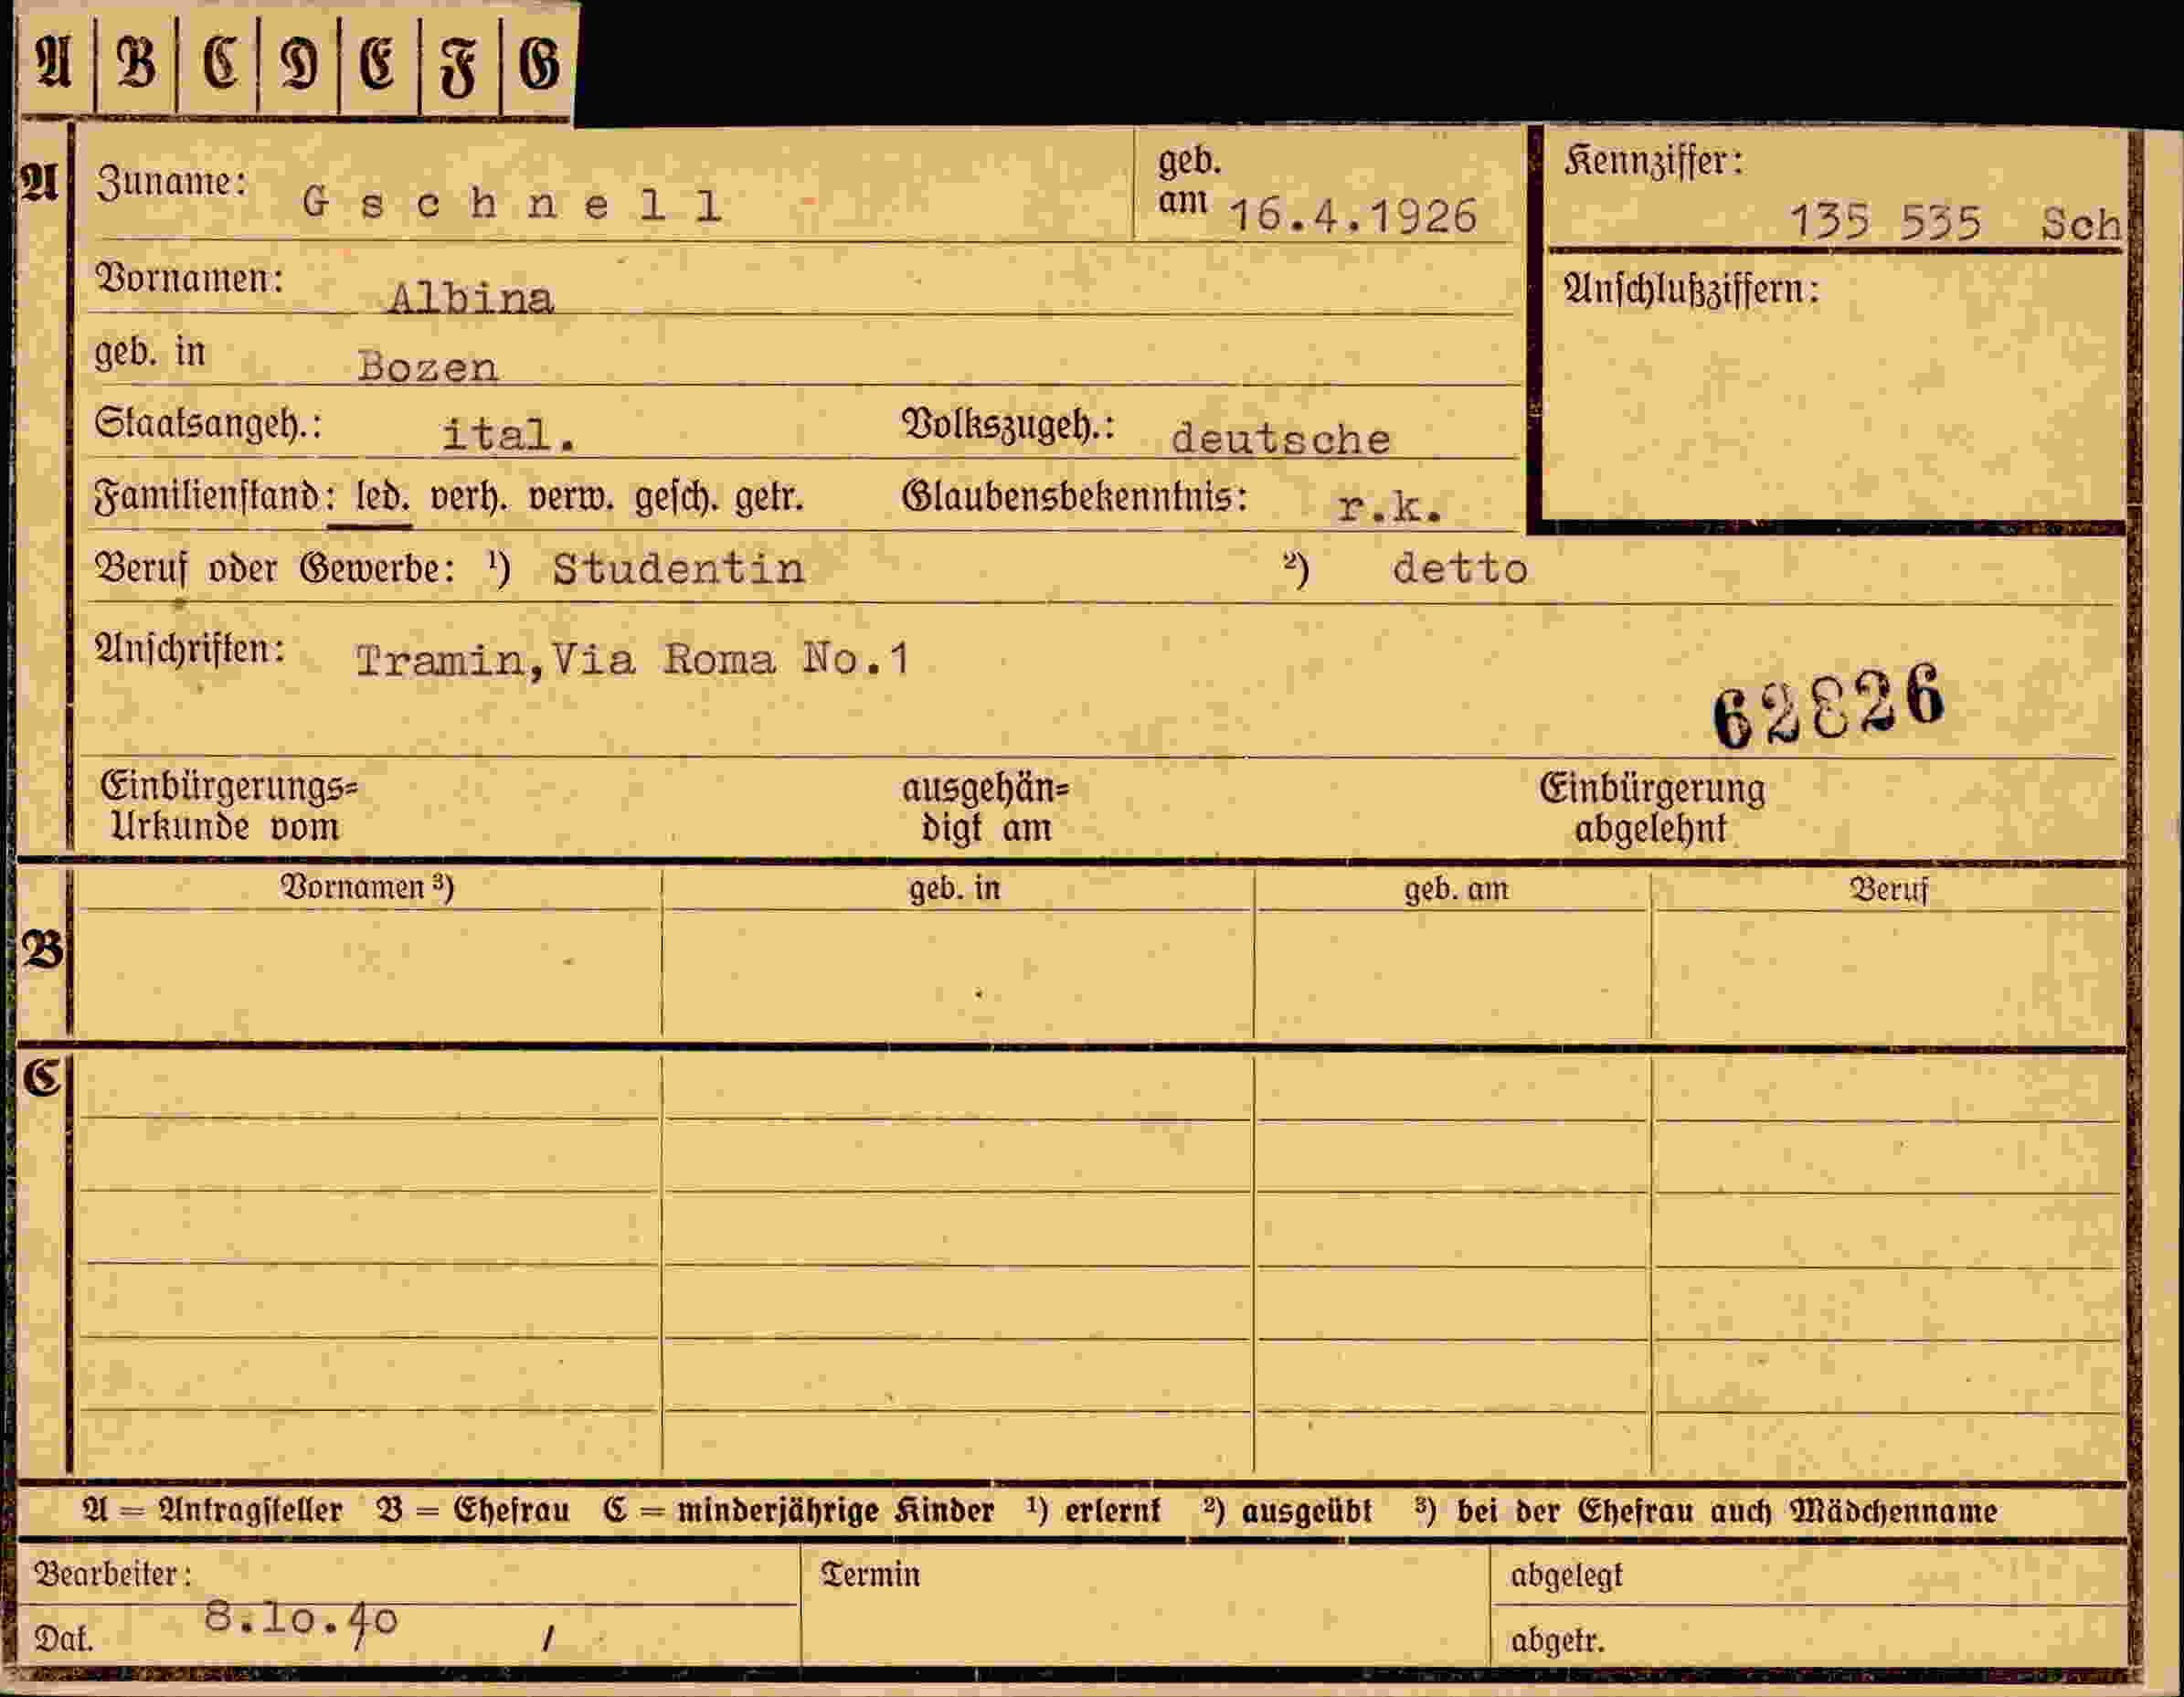 A B C D E F G
A Zuname: Gschnell geb. am 16.4.1926 Kennziffer: 135 535 Sch
Vornamen: Albina Anschlußziffern:
geb. in Bozen
Staatsangeh.: ital. Volkszugeh.: deutsche
Familienstand: led. verh. verw. gesch. getr. Glaubensbekenntnis: r.k.
Beruf oder Gewerbe: ¹) Studentin ²) detto
Anschriften: Tramin,Via Roma No.1
62826
Einbürgerungs= ausgehän= Einbürgerung
Urkunde vom digt am abgelehnt
Vornamen ³) geb. in geb. am Beruf
B
C
A = Antragsteller B = Ehefrau C = minderjährige Kinder ¹) erlernt ²) ausgeübt ³) bei der Ehefrau auch Mädchenname
Bearbeiter: Termin abgelegt
Dat. 8.10.40 / abgetr.